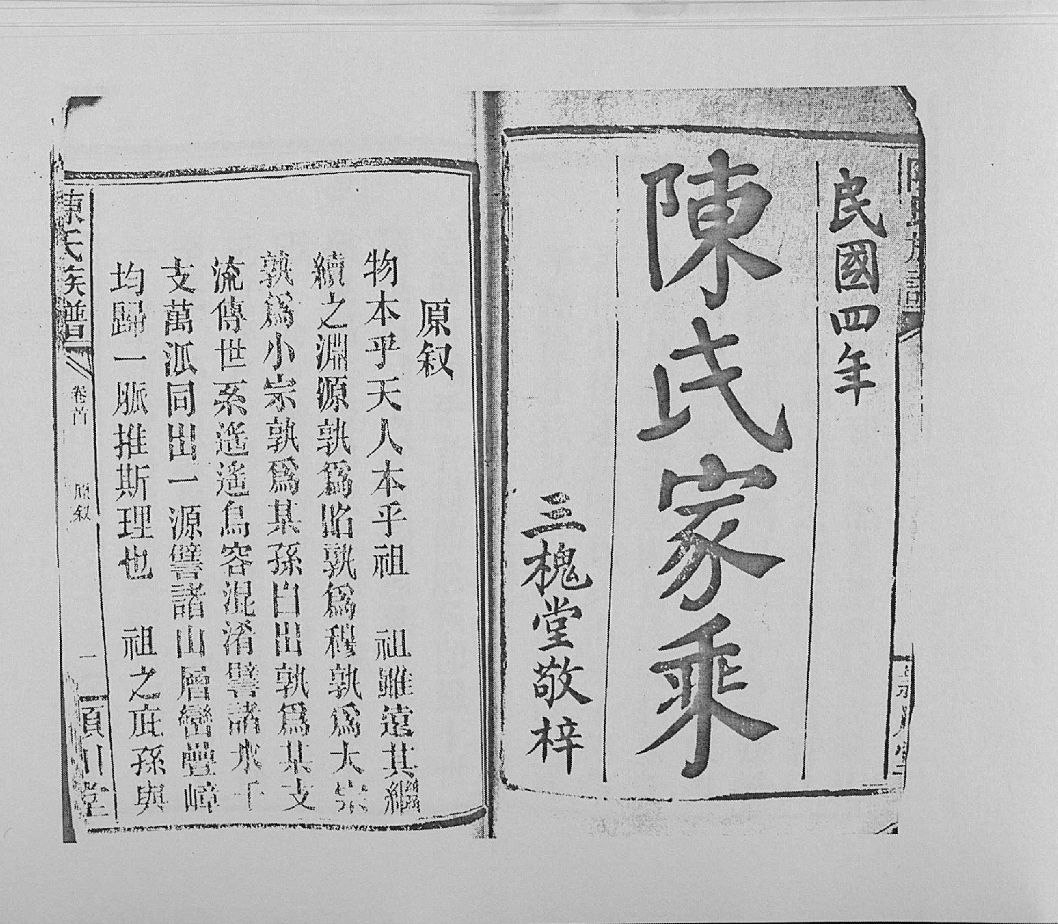 民國四年
陳氏家乘
三槐堂敬梓
原叙
物本乎天人本乎祖　祖雖遠其繼
續之淵源孰爲昭孰爲穆孰爲大宗
孰爲小宗孰爲某孫自出孰爲某支
流傳世系遙遙烏容混淆譬諸水千
支萬派同出一源譬諸山層巒疊嶂
均歸一脈推斯理也　祖之庶孫與
陳氏族譜
卷首
原叙
一
堂